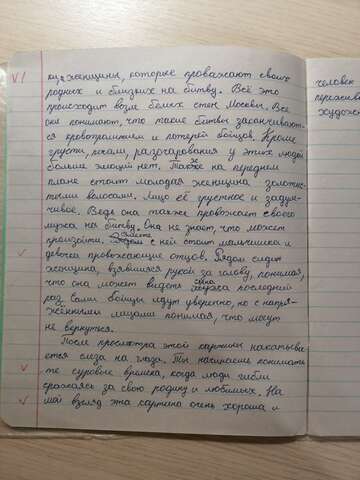 V/
ку, женщины, которые проважают своих
родных и близких на битву. Всё это
происходит возле белых стен Москвы. Все
они понимают, что такие битвы заканчивают-
ся кровопролитием и потерей бойцов. Кроме
грусти, печали, разочарования у этих людей
больше эмоций нет. Также на переднем
плане стоит молодая женщина золотис-
тыми волосами. Лицо её грустное и задум-
чивое. Ведь она также провожает своего
мужа на битву. Она не знает, что может
произойти. Вместе с ней стоит мальчишка и
девочка провожающие отцов. Рядом сидит
женщина, взявшаяся рукой за голову, понимая,
что она может видеть сына последний
раз. Сами бойцы идут уверенно, но с напря-
жёнными лицами понимая, что могут
не вернуться.
После просмотра этой картины накатыва-
ется слеза на глаза. Ты начинаешь понимать
те суровые времена, когда люди гибли
сражаясь за свою родину и любимых. На
мой взгляд эта картина очень хороша и
человек
пережива
художн